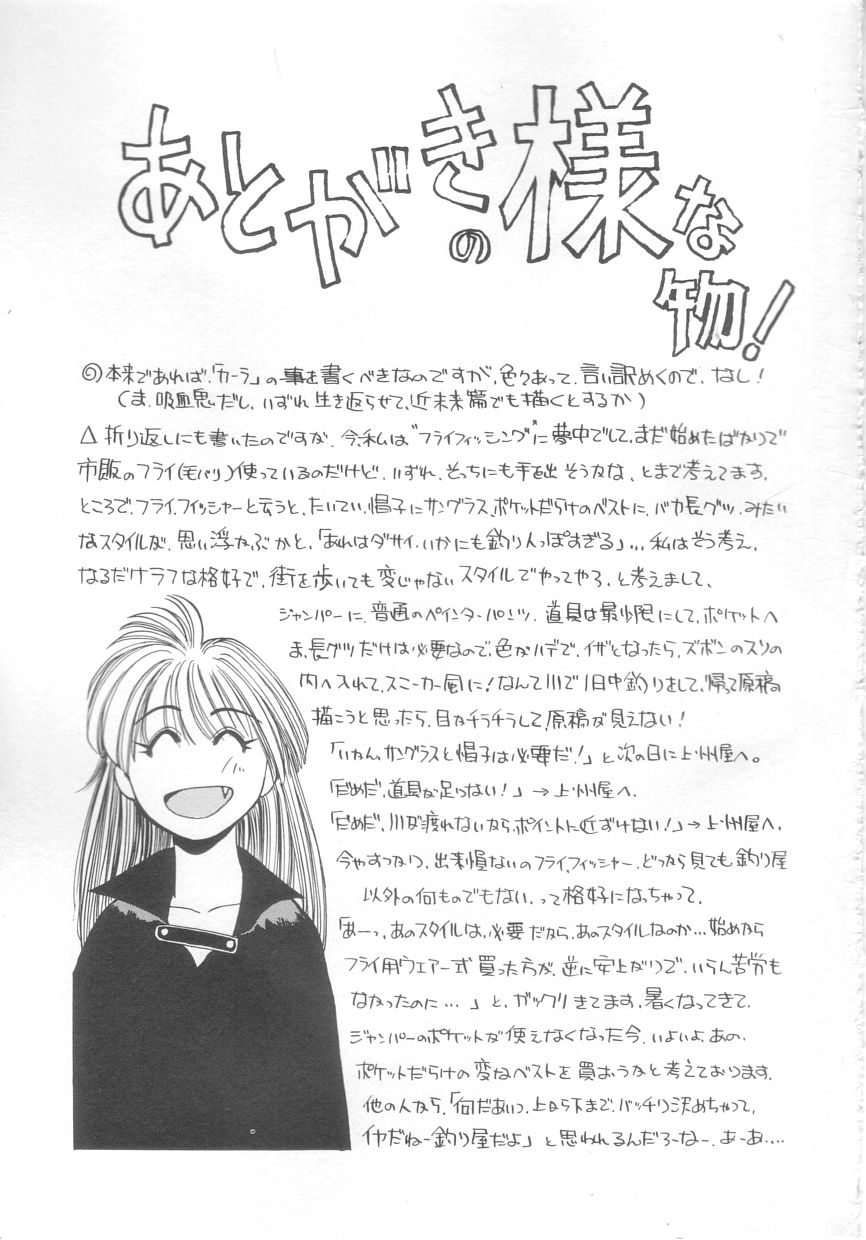 あとがきの様な
物!
◎本来であれば、「カーラ」の事を書くべきなのですが、色々あって、言い訳めくので、なし!
(ま、吸血鬼だし、いずれ生き返らせて、近未来篇でも描くとするか)
△折り返しにも書いたのですが、今、私は“フライフィッシング”に夢中でして、まだ始めたばかりで
市販のフライ(毛バリ)使っているのだけど、いずれ、そっちにも手を出そうかな、とまで考えてます。
ところで、フライ、フィッシャーと云うと、たいてい、帽子にサングラス、ポケットだらけのベストに、バカ長グツ、みたい
なスタイルが、思い浮かぶかと、「あれはダサイ、いかにも釣り人っぽすぎる」…私はそう考え、
なるだけラフな格好で、街を歩いても変じゃないスタイルでやってやろ、と考えまして、
ジャンパーに、普通のペインターパンツ、道具は最少限にして、ポケットへ
ま、長グツだけは必要なので、色がハデで、イザとなったら、ズボンのスソの
内へ入れて、スニーカー風に!なんて川で1日中釣りまして、帰って原稿
描こうと思ったら、目がチラチラして、原稿が見えない!
「いかん、サングラスと帽子は必要だ!」と次の日に上州屋へ。
「だめだ、道具が足らない!」→上州屋へ、
「だめだ、川が渡れないなら、ポイントに近ずけない!」→上州屋へ、
今やすっかり、出来損ないのフライ、フィッシャー、どっから見ても釣り屋
以外の何ものでもない、って格好になっちゃって、
「あーっ、あのスタイルは、必要だから、あのスタイルなのか…始めから
フライ用ウェアー式買った方が、逆に安上がりで、いらん苦労も
なかったのに…」と、ガックリきてます、暑くなってきて、
ジャンパーのポケットが使えなくなった今、いよいよ、あの、
ポケットだらけの変なベストを買おうかと考えております、
他の人なら、「何だあいつ、上から下まで、バッチリ決めちゃって、
イヤだねー釣り屋だよ」と思われるんだろーなー、あーあ…